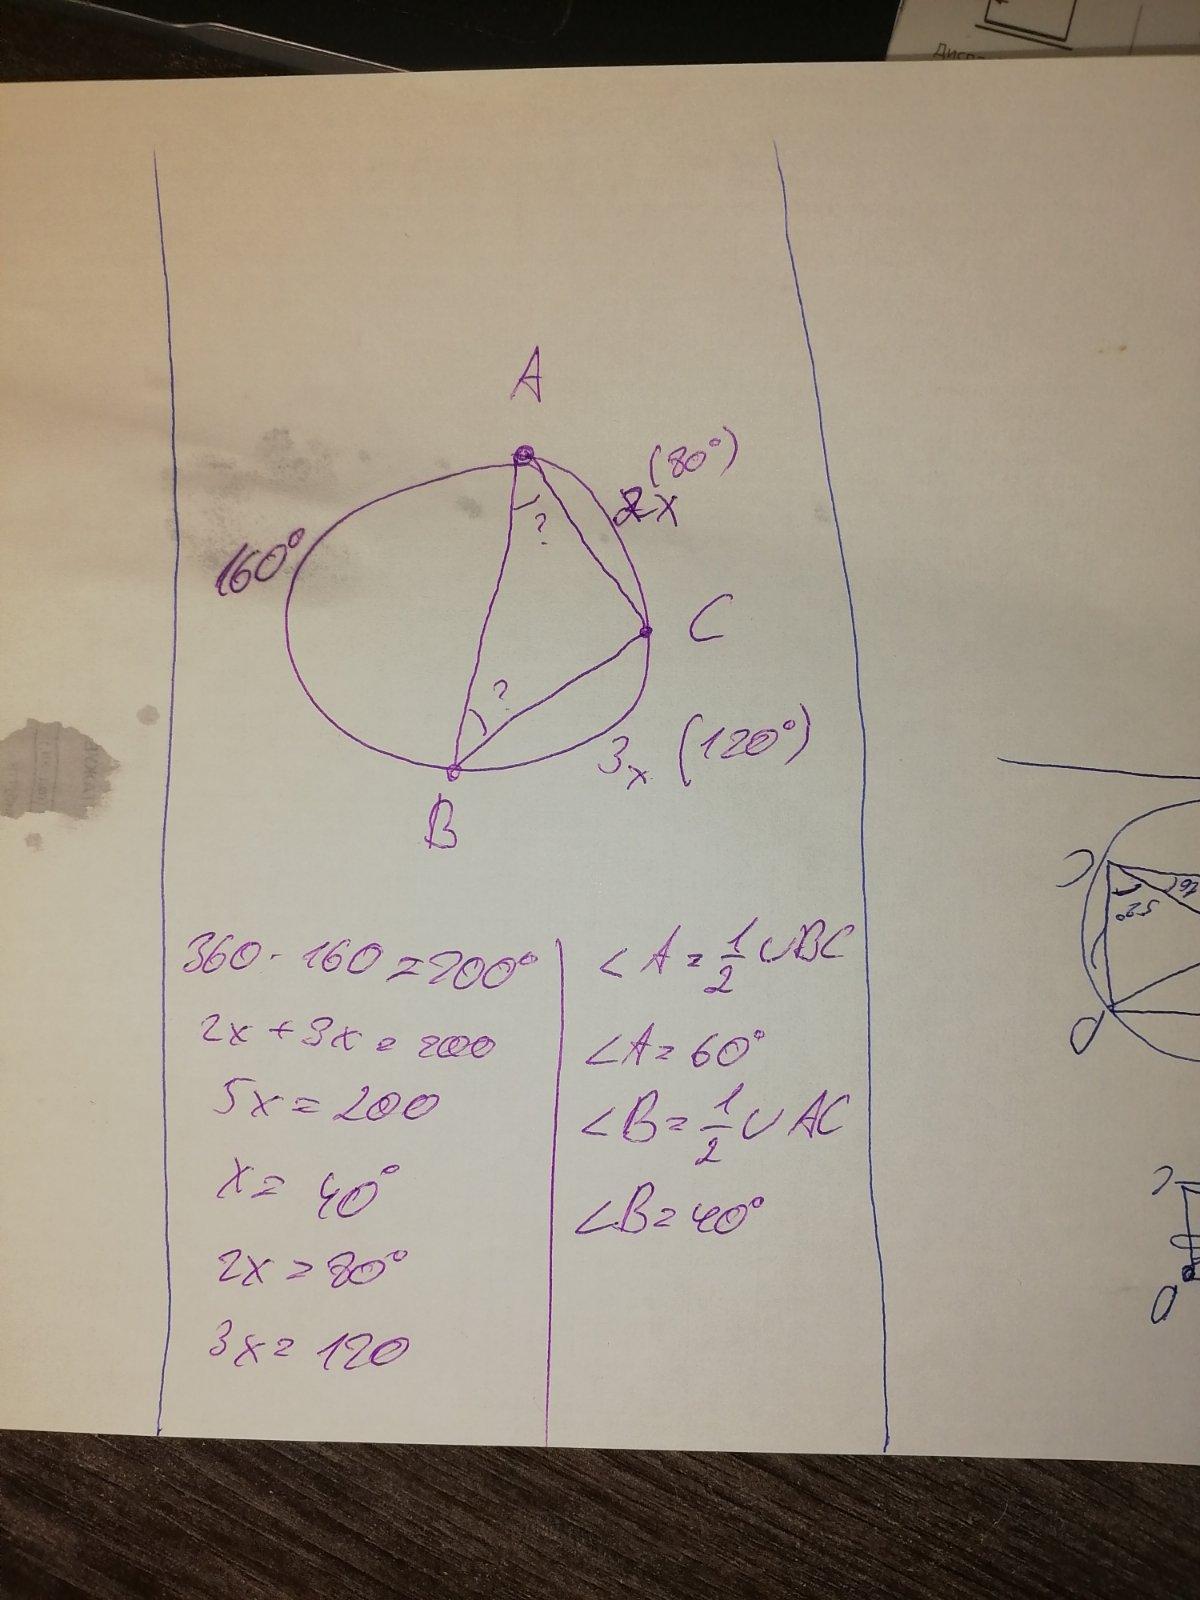 Диспл
A
(80°)
2x
160°
?
C
?
3x (120°)
B
52°
360 - 160 = 200°
2x + 3x = 200
5x = 200
x = 40°
2x = 80°
3x = 120
∠A = 1/2 ∪BC
∠A = 60°
∠B = 1/2 ∪AC
∠B = 40°